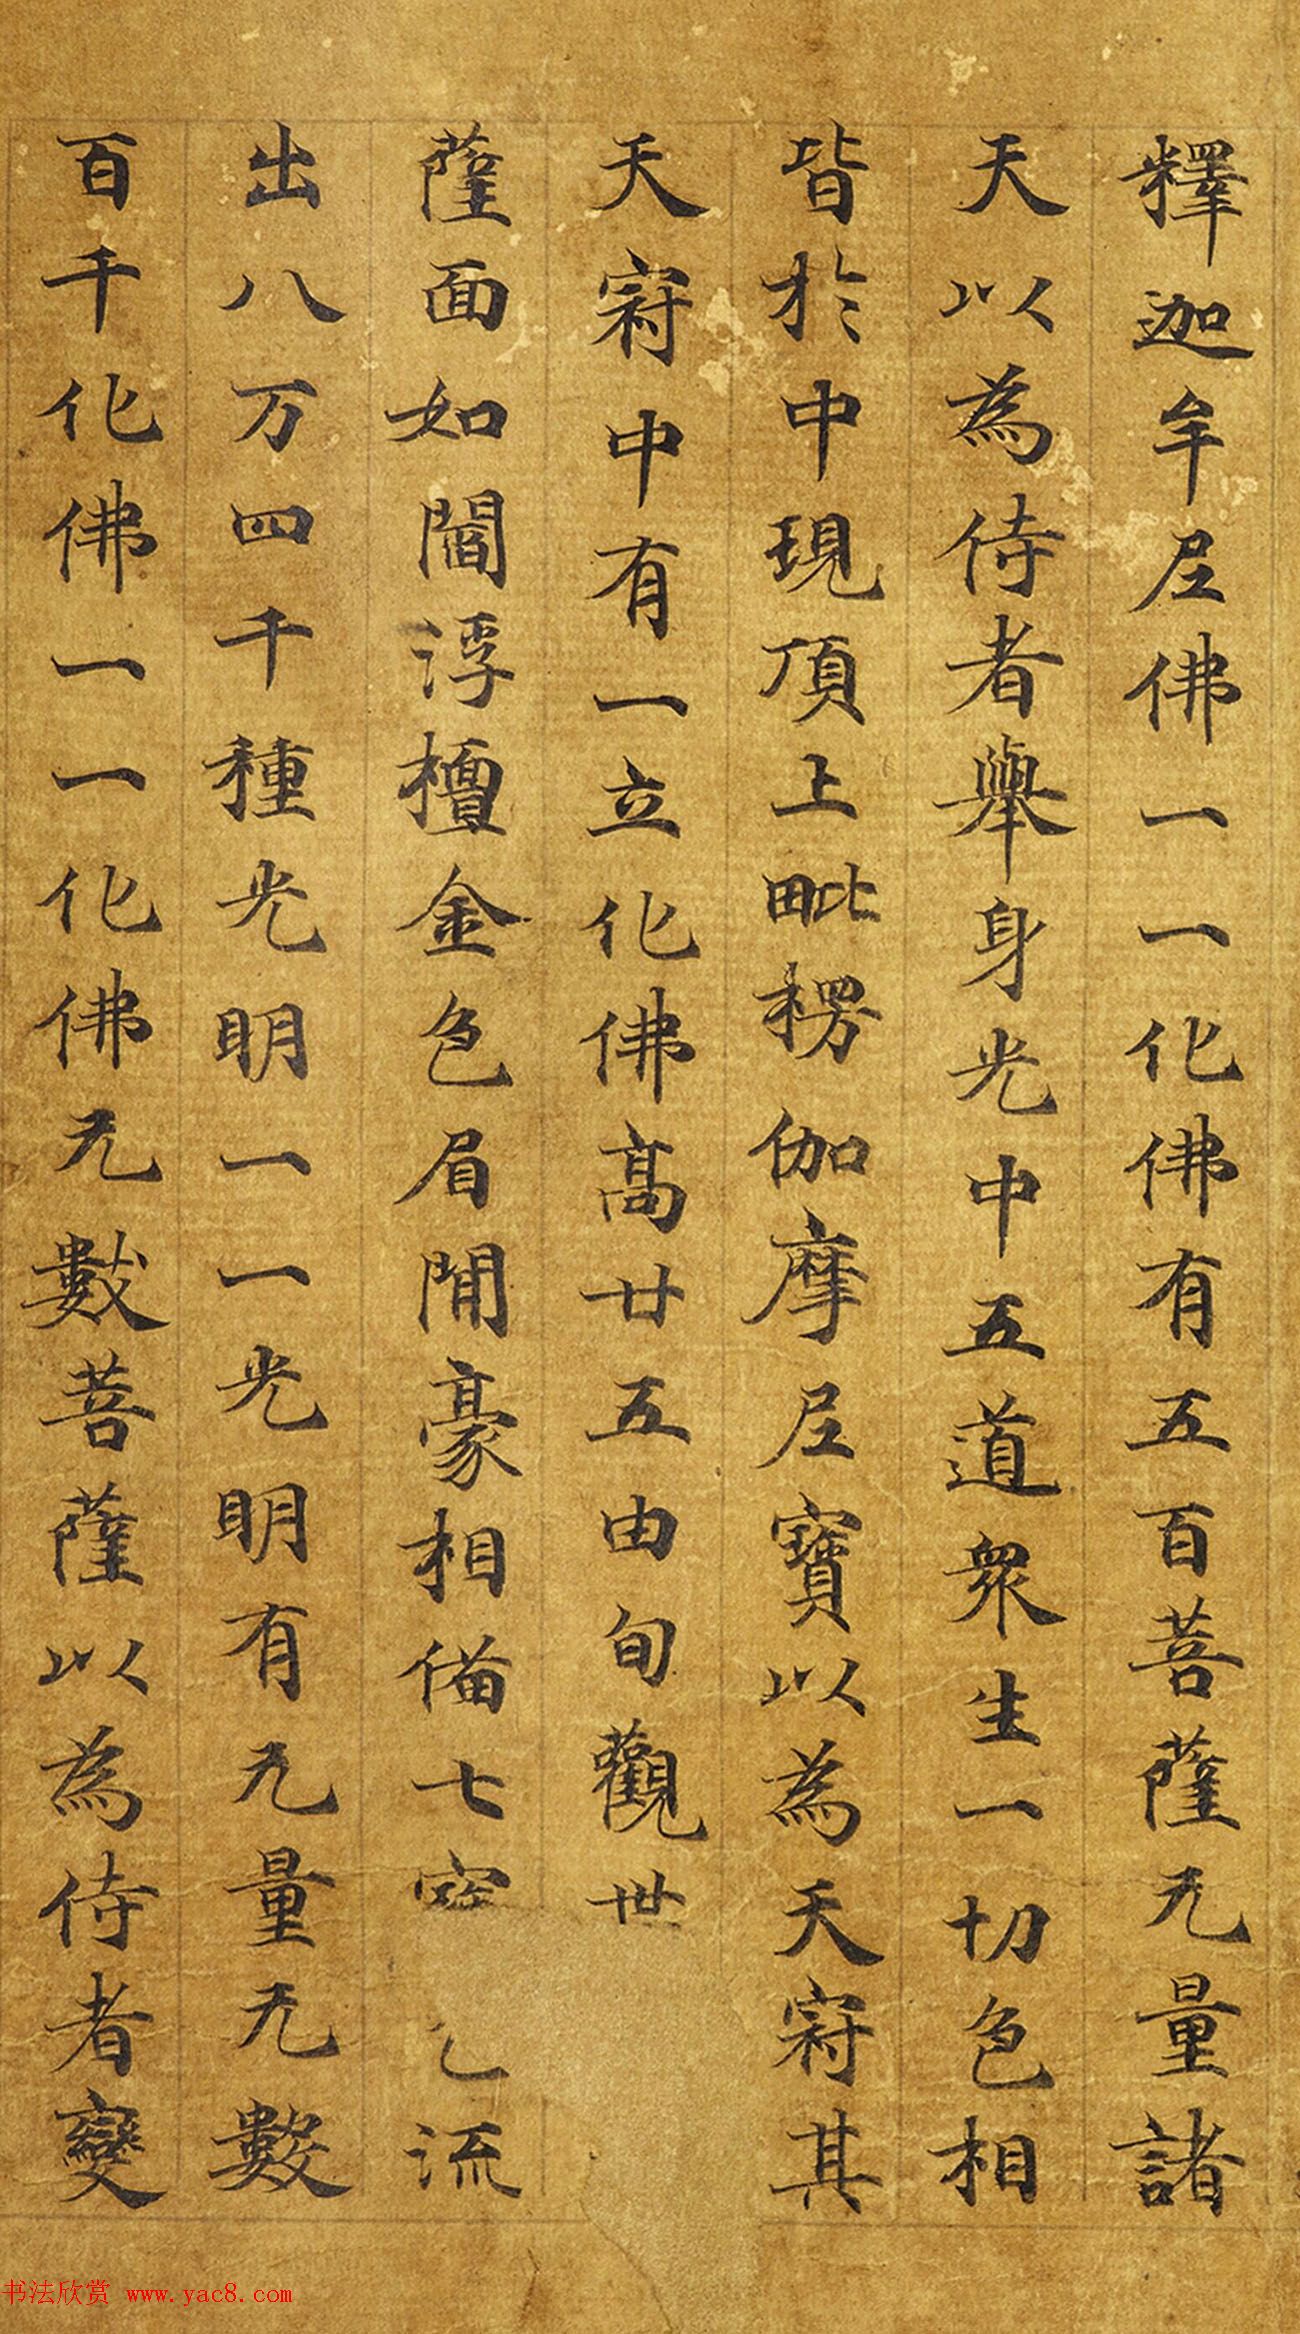 釋迦牟尼佛一一化佛有五百菩薩无量諸
天以為侍者舉身光中五道眾生一切色相
皆於中現頂上毗楞伽摩尼寶以為天冠其
天冠中有一立化佛高廿五由旬觀世
薩面如閻浮檀金色眉間豪相備七流
出八万四千種光明一一光明有无量无數
百千化佛一一化佛无數菩薩以為侍者變
书法欣赏 www.yac8.com